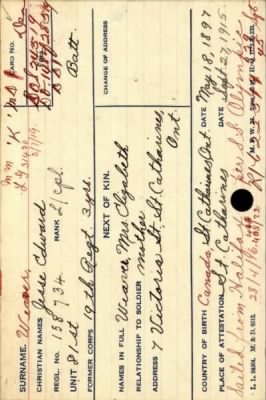 SURNAME. Weaver.
CHRISTIAN NAMES Jesse Edward
REGL. No. 158734 RANK L/Cpl.
UNIT 81st Batt.
FORMER CORPS 19th Regt. 3 yrs.
M M "K"
L.G. 31430
3/7/19.
CARD NO.
NEXT OF KIN.
NAMES IN FULL Weaver, Mrs Elizabeth
RELATIONSHIP TO SOLDIER mother
ADDRESS 7 Victoria St., St. Catharines,
Ont.
CHANGE OF ADDRESS
COUNTRY OF BIRTH Canada, St. Catharines, Ont. DATE May 18, 1897
PLACE OF ATTESTATION St. Catharines DATE Sept 27, 1915.
Sailed from Halifax per S.S. Olympic
28/4/16.